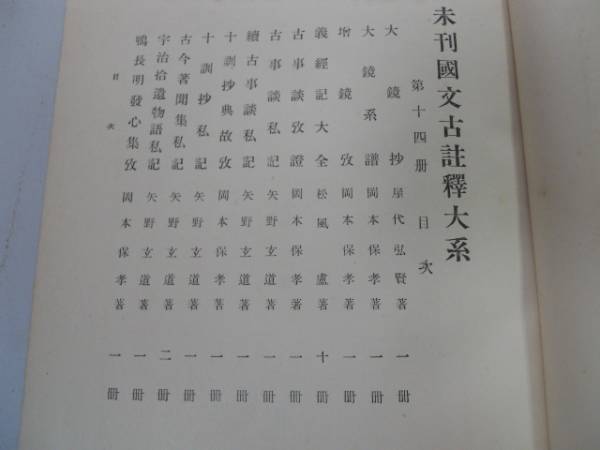 未刊國文古註釋大系
第十四册 目次
大鏡抄 屋代弘賢著 一冊
大鏡系譜 岡本保孝著 一冊
增鏡攷 岡本保孝著 一冊
義經記大全 松風廬著 十冊
古事談攷證 岡本保孝著 一冊
古事談私記 矢野玄道著 一冊
續古事談私記 矢野玄道著 一冊
十訓抄典故攷 岡本保孝著 一冊
十訓抄私記 矢野玄道著 一冊
古今著聞集私記 矢野玄道著 二冊
宇治拾遺物語私記 矢野玄道著 一冊
鴨長明發心集攷 岡本保孝著 一冊
目次